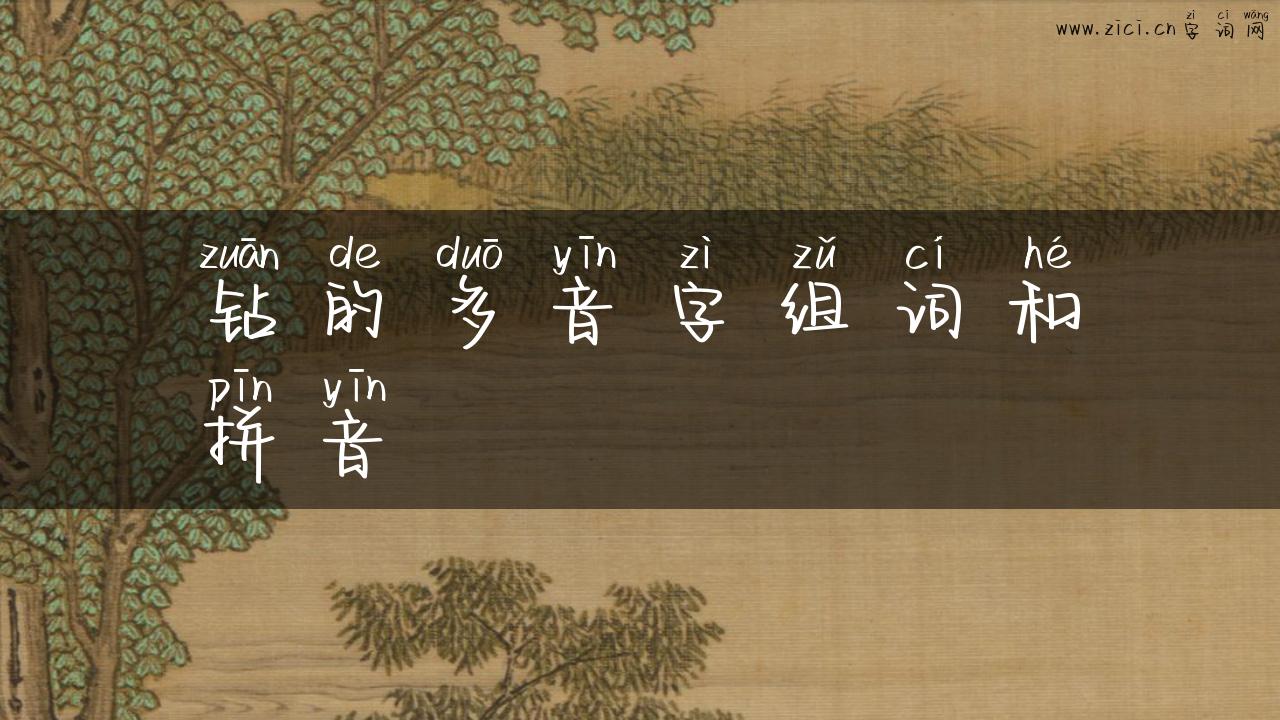 zì cí wǎng
www.zici.cn字词网
zuān de duō yīn zì zǔ cí hé
钻的多音字组词和
pīn yīn
拼音